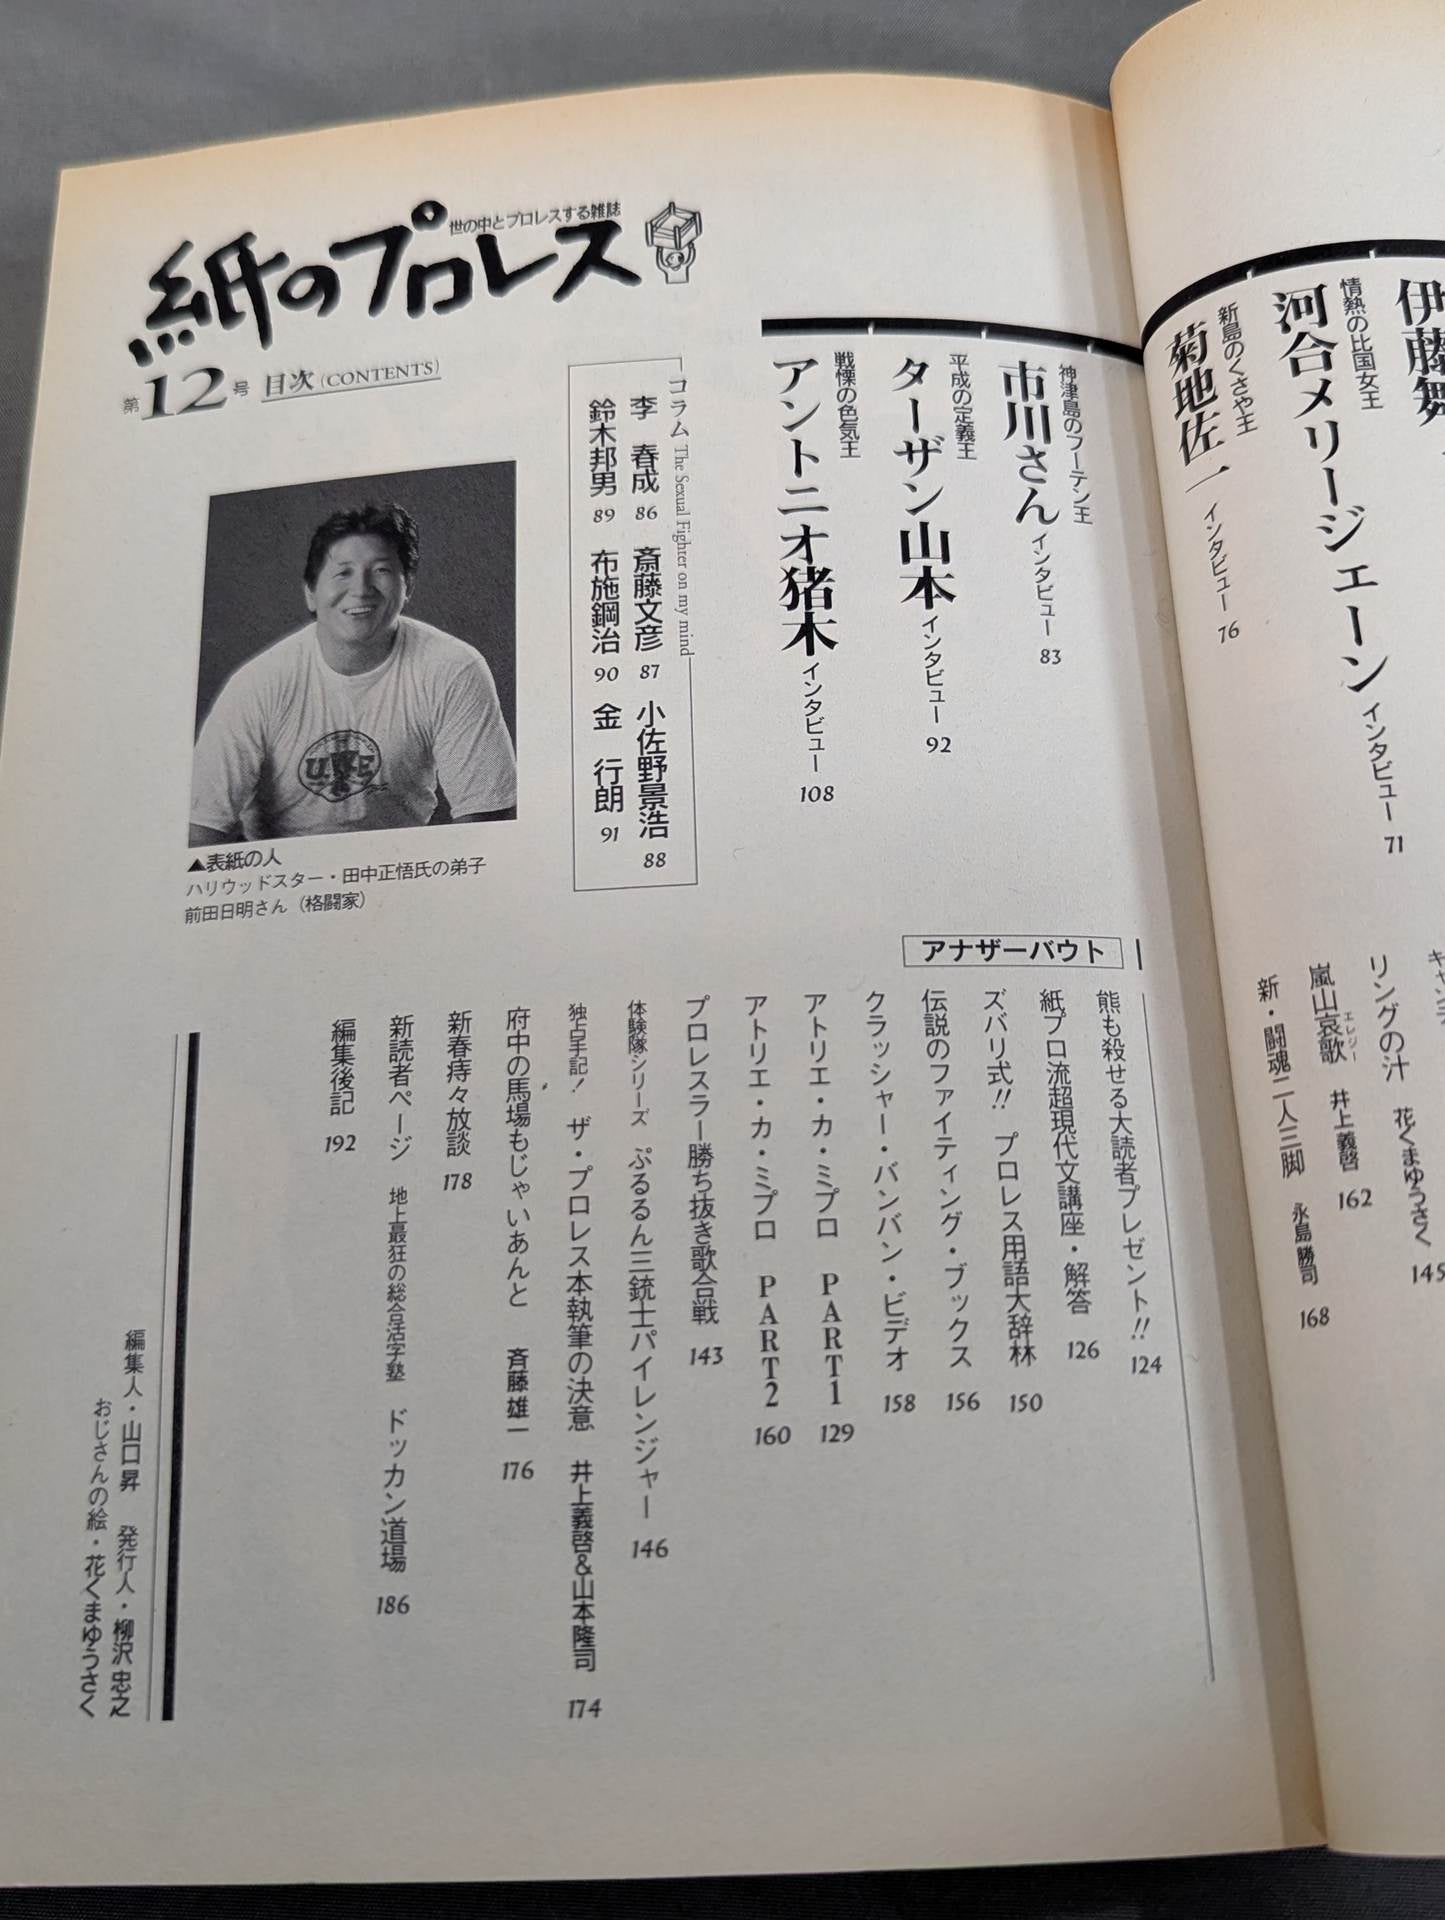 世の中とプロレスする雑誌
紙のプロレス
第12号 目次 (CONTENTS)
▲表紙の人
ハリウッドスター・田中正悟氏の弟子
前田日明さん（格闘家）
情熱の比国女王
河合メリージェーン インタビュー 71
新島のくさや王
菊地佐一 インタビュー 76
神津島のフーテン王
市川さん インタビュー 83
平成の定義王
ターザン山本 インタビュー 92
戦慄の色気王
アントニオ猪木 インタビュー 108
コラム The Sexual Fighter on my mind
李 春成 86 斎藤文彦 87 小佐野景浩 88
鈴木邦男 89 布施鋼治 90 金 行朗 91
リングの汁 花くまゆうさく 145
嵐山哀歌 エレジー 井上義啓 162
新・闘魂二人三脚 永島勝司 168
アナザーバウト
熊も殺せる大読者プレゼント!! 124
紙プロ流超現代文講座・解答 126
ズバリ式!! プロレス用語大辞林 150
伝説のファイティング・ブックス 156
クラッシャー・バンバン・ビデオ 158
アトリエ・カ・ミプロ PART1 129
アトリエ・カ・ミプロ PART2 160
プロレスラー勝ち抜き歌合戦 143
体験隊シリーズ ぷるるん三銃士パイレンジャー 146
独占手記! ザ・プロレス本執筆の決意 井上義啓&山本隆司 174
府中の馬場もじゃいあんと 斉藤雄一 176
新春痔々放談 178
新読者ページ 地上最狂の総合活字塾 ドッカン道場 186
編集後記 192
編集人・山口昇 発行人・柳沢忠之
おじさんの絵・花くまゆうさく